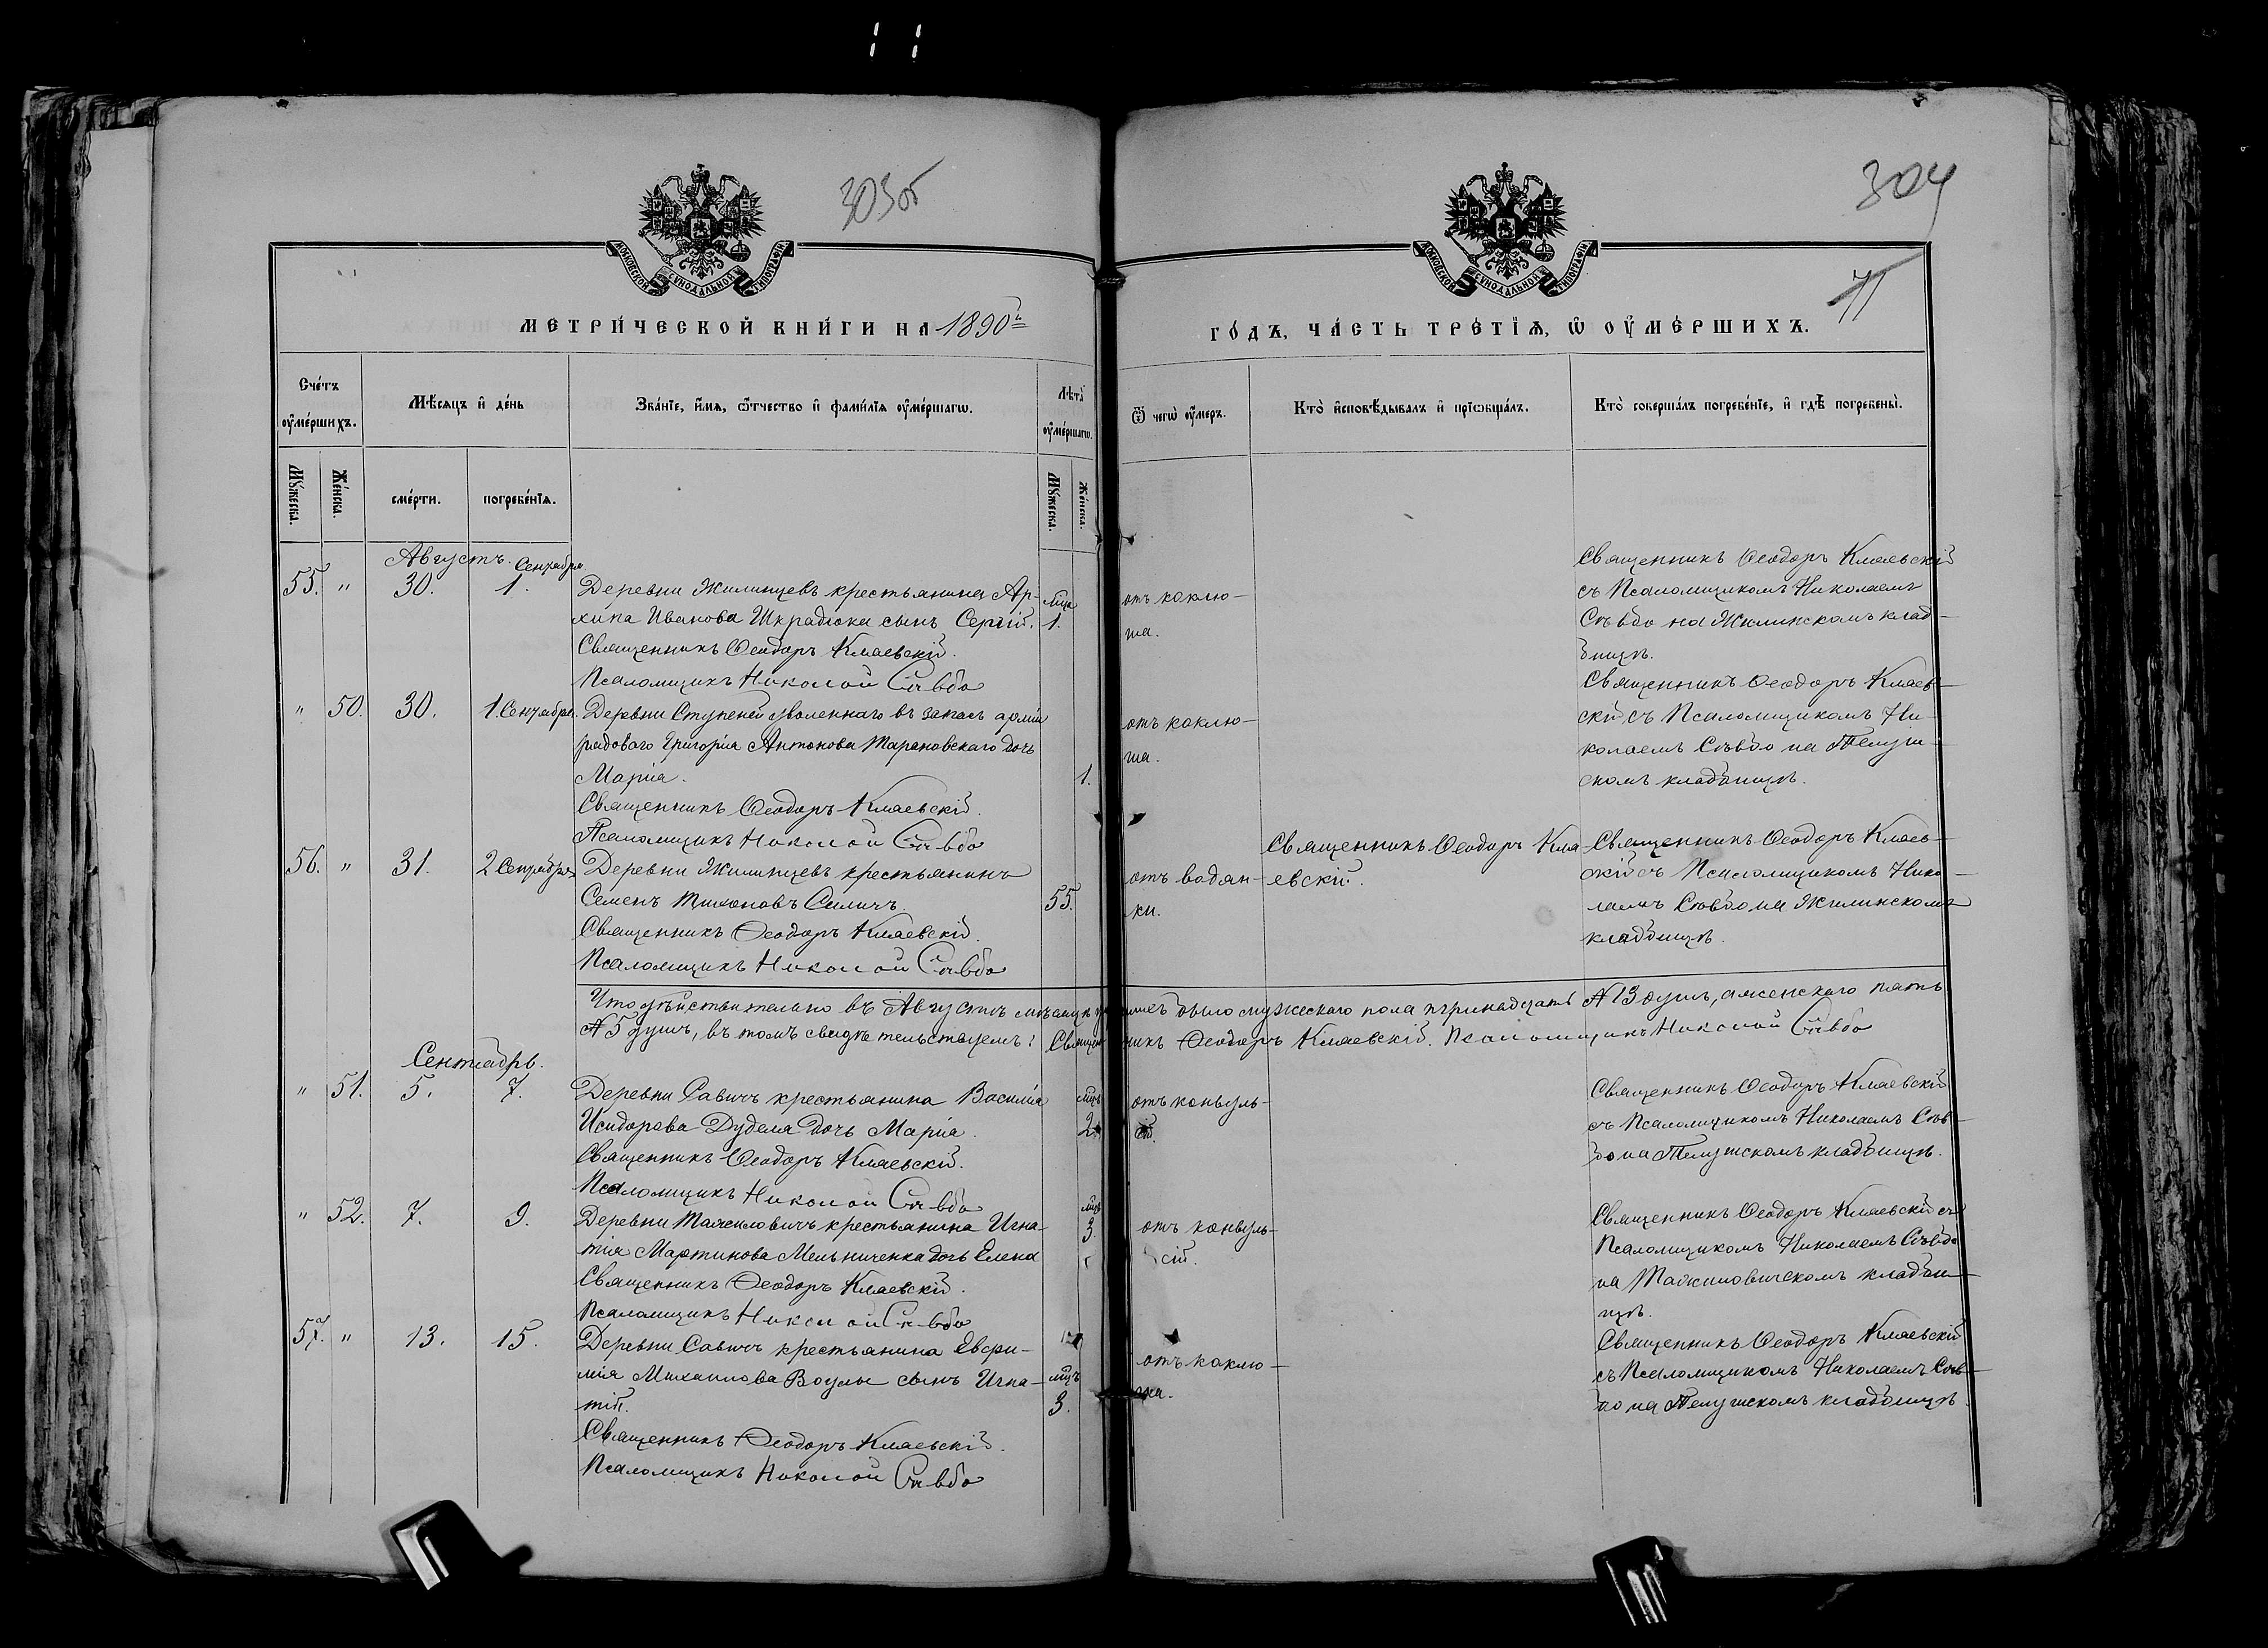 303об
304
71
МОСКОВСКОЙ СѴНОДАЛЬНОЙ ТИПОГРАФІИ
МОСКОВСКОЙ СѴНОДАЛЬНОЙ ТИПОГРАФІИ
МЕТРИ́ЧЕСКОЙ КНИ́ГИ НА 1890й
ГО́ДЪ, ЧА́СТЬ ТРЕ́ТІѦ, Ѡ ОУМЕ́РШИХЪ.
Сче́тъ оуме́ршихъ.
Мѣ́сяцъ и де́нь
Зва́нїе, и́мѧ, ѻ́тчество и фами́лїѧ оуме́ршагѡ.
Лѣта̀ оуме́ршагѡ.
Ѿ чегѡ̀ оу́меръ.
Кто̀ и҆сповѣ́дывалъ и прїѡбща́лъ.
Кто̀ соверша́лъ погребе́нїе, и гдѣ̀ погребены̀.
Мꙋ́жеска.
Же́нска.
сме́рти.
погребе́нїѧ.
Мꙋ́жеска.
Же́нска.
Августъ. Сентября.
55. " 30. 1.
Деревни Жилинцевъ крестьянина Ар-
хипа Иванова Шкрадюка сынъ Сергій.
мца
1.
Священникъ Ѳеодоръ Кляевскій.
Псаломщикъ Николай Съвбо
отъ коклю-
ша.
Священникъ Ѳеодоръ Кляевскій
съ Псаломщикомъ Николаемъ
Съвбо на Жилинскомъ клад-
бищѣ.
" 50. 30. 1. Сентября.
Деревни Ступеней уволеннаго въ запасъ арміи
рядоваго Григорія Антонова Тарановскаго дочь
Марія.
1.
Священникъ Ѳеодоръ Кляевскій.
Псаломщикъ Николай Съвбо
отъ коклю-
ша.
Священникъ Ѳеодоръ Кляев-
скій, съ Псаломщикомъ Ни-
колаемъ Съвбо на Телуш-
скомъ кладбищѣ.
56. " 31. 2 Сентября.
Деревни Жилинцевъ крестьянинъ
Семенъ Тихоновъ Силичъ.
55.
Священникъ Ѳеодоръ Кляевскій.
Псаломщикъ Николай Съвбо
отъ водян-
ки.
Священникъ Ѳеодоръ Кля-
евскій.
Священникъ Ѳеодоръ Кляев-
скій съ Псаломщикомъ Нико-
лаемъ Съвбо на Жилинскомъ
кладбищѣ.
Что дѣйствительно въ Августѣ мѣсяцѣ было мужескаго пола тринадцать № 13 душъ, а женскаго пять
№ 5 душъ, въ томъ свидѣтельствуемъ: Священникъ Ѳеодоръ Кляевскій. Псаломщикъ Николай Съвбо
Сентябрь.
" 51. 5. 7.
Деревни Савичъ крестьянина Василія
Исидорова Дубеля дочь Марія.
мцъ
2.
Священникъ Ѳеодоръ Кляевскій.
Псаломщикъ Николай Съвбо
отъ конвуль-
сій.
Священникъ Ѳеодоръ Кляевскій
съ Псаломщикомъ Николаемъ Съв-
бо на Телушскомъ кладбищѣ.
" 52. 7. 9.
Деревни Тажиловичъ крестьянина Игна-
тія Мартинова Мельниченка дочь Елена
мцъ
3.
Священникъ Ѳеодоръ Кляевскій.
Псаломщикъ Николай Съвбо
отъ конвуль-
сій.
Священникъ Ѳеодоръ Кляевскій съ
Псаломщикомъ Николаемъ Съвбо
на Тажиловичскомъ кладби-
щѣ.
57. " 13. 15.
Деревни Савичъ крестьянина Евфи-
мія Михаилова Воулы сынъ Игна-
тій.
мцъ
3.
Священникъ Ѳеодоръ Кляевскій.
Псаломщикъ Николай Съвбо
отъ коклю-
ша.
Священникъ Ѳеодоръ Кляевскій
съ Псаломщикомъ Николаемъ Съв-
бо на Телушскомъ кладбищѣ.